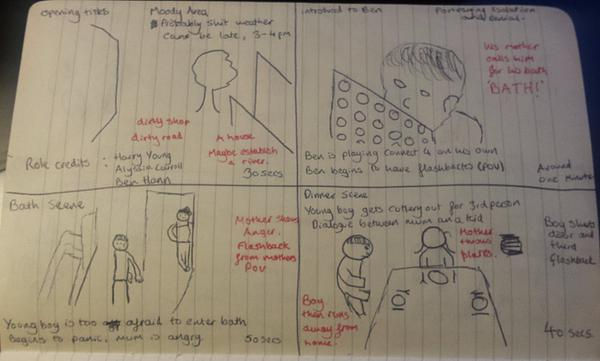 Opening titles
Moody Area
Probably shit weather
Cannot be late, 3-4pm
dirty shop
dirty road
A house
Maybe establish
a river.
30 secs
Role credits : Harry Young
Alyssia Carroll
Ben Hann
Introduced to Ben
Portraying Isolation
and Denial.
His mother
calls him
for his bath
'BATH!'
Ben is playing connect 4 on his own
Ben begins to have flashbacks (POV)
Around
one minute
Bath Scene
Mother shows
Anger.
Flashback
from mothers
POV
Young boy is too afraid to enter bath
Begins to panic, mum is angry.
50 secs
Dinner Scene
Young boy gets cutlery out for 3rd person
Dialogue between mum and kid
Mother throws
plates.
Boy shuts
door and
third
flashback
Boy
then runs
away from
home.
40 secs.